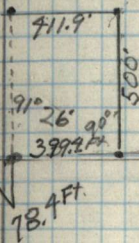 411.9'
500'
91°
26'
90°
399.4 Ft
78.4 Ft.